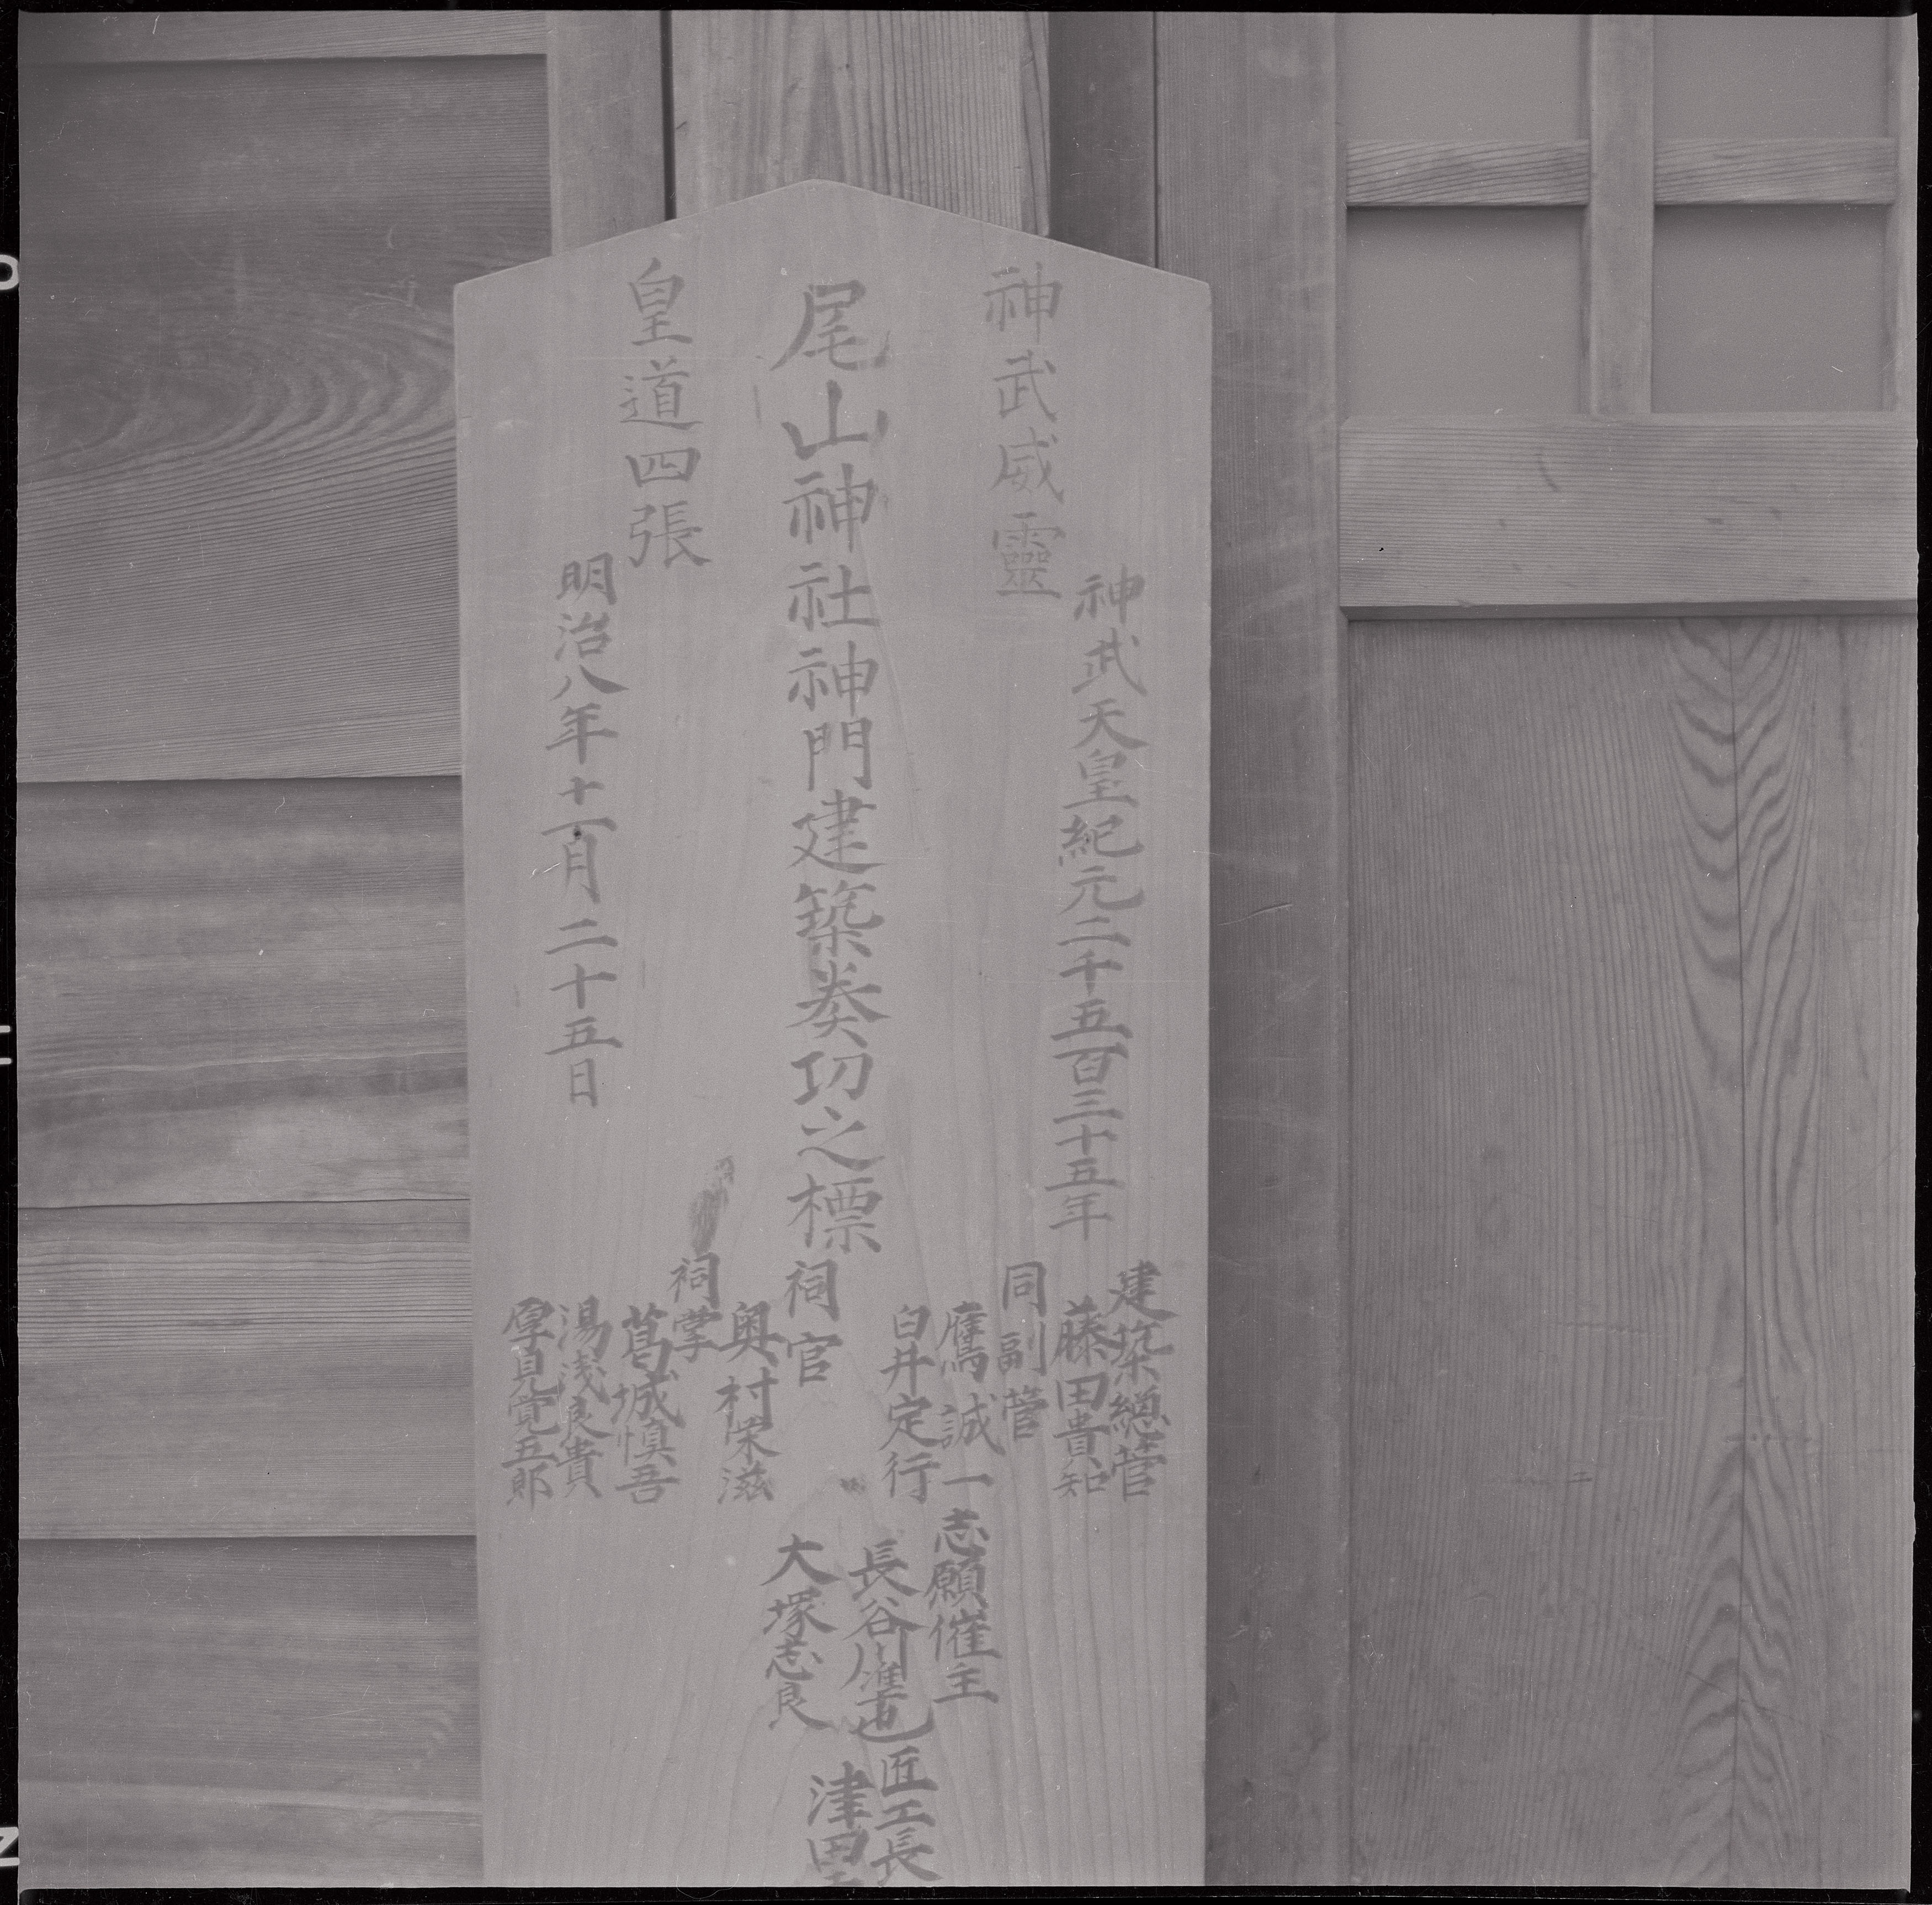 神武威靈
神武天皇紀元二千五百三十五年
尾山神社神門建築奏功之標
皇道四張
明治八年十一月二十五日
建築總管
藤田貴知
同副管
鷹誠一
臼井定行
祠官
奥村栄滋
祠掌
葛城慎吾
湯浅良貴
厚見覚五郎
志願催主
長谷川準也
大塚志良
匠工長
津田